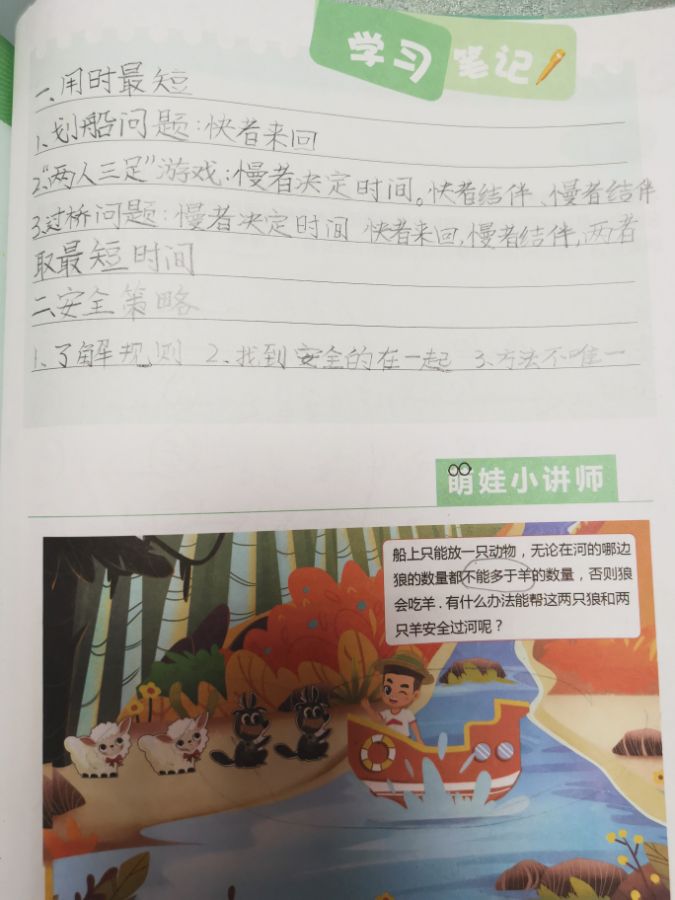 学习笔记
一、用时最短
1、划船问题:快者来回
2."两人三足"游戏:慢者决定时间。快者结伴、慢者结伴
3.过桥问题:慢者决定时间 快者来回,慢者结伴,两者
取最短时间
二、安全策略
1、了解规则 2、找到安全的在一起 3、方法不唯一
萌娃小讲师
船上只能放一只动物,无论在河的哪边
狼的数量都不能多于羊的数量,否则狼
会吃羊.有什么办法能帮这两只狼和两
只羊安全过河呢?